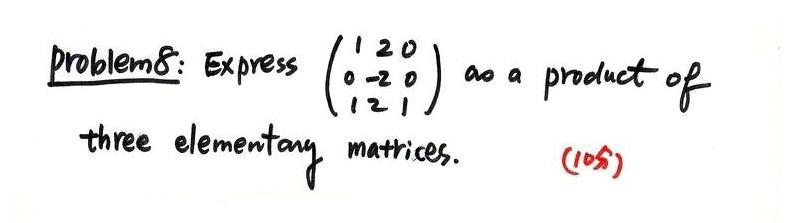 problem8: Express ( 1 2 0
0 -2 0
1 2 1 ) as a product of
three elementary matrices. (10分)